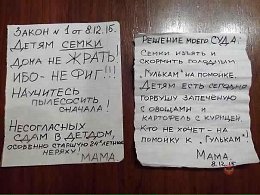 ЗАКОН №1 от 8.12.15.
ДЕТЯМ СЕМКИ
ДОМА НЕ ЖРАТЬ
ИБО - НЕ ФИГ!!!
НАУЧИТЕСЬ
ПЫЛЕСОСИТЬ
СНАЧАЛА!
НЕСОГЛАСНЫХ
СДАМ В ДЕТДОМ,
ОСОБЕННО СТАРШУЮ 24 ЛЕТНЮЮ
НЕРЯХУ
МАМА
РЕШЕНИЕ МОЕГО СУДА:
СЕМКИ ИЗЪЯТЬ И
СКОРМИТЬ ГОЛОДНЫМ
"ГУЛЬКАМ" НА ПОМОЙКЕ.
ДЕТЯМ ЕСТЬ СЕГОДНЯ
ГОРБУШУ ЗАПЕЧЁНУЮ
С ОВОЩАМИ И
КАРТОФЕЛЬ С КУРИЦЕЙ.
КТО НЕ ХОЧЕТ - НА
ПОМОЙКУ К "ГУЛЬКАМ"
МАМА.
8.12.15